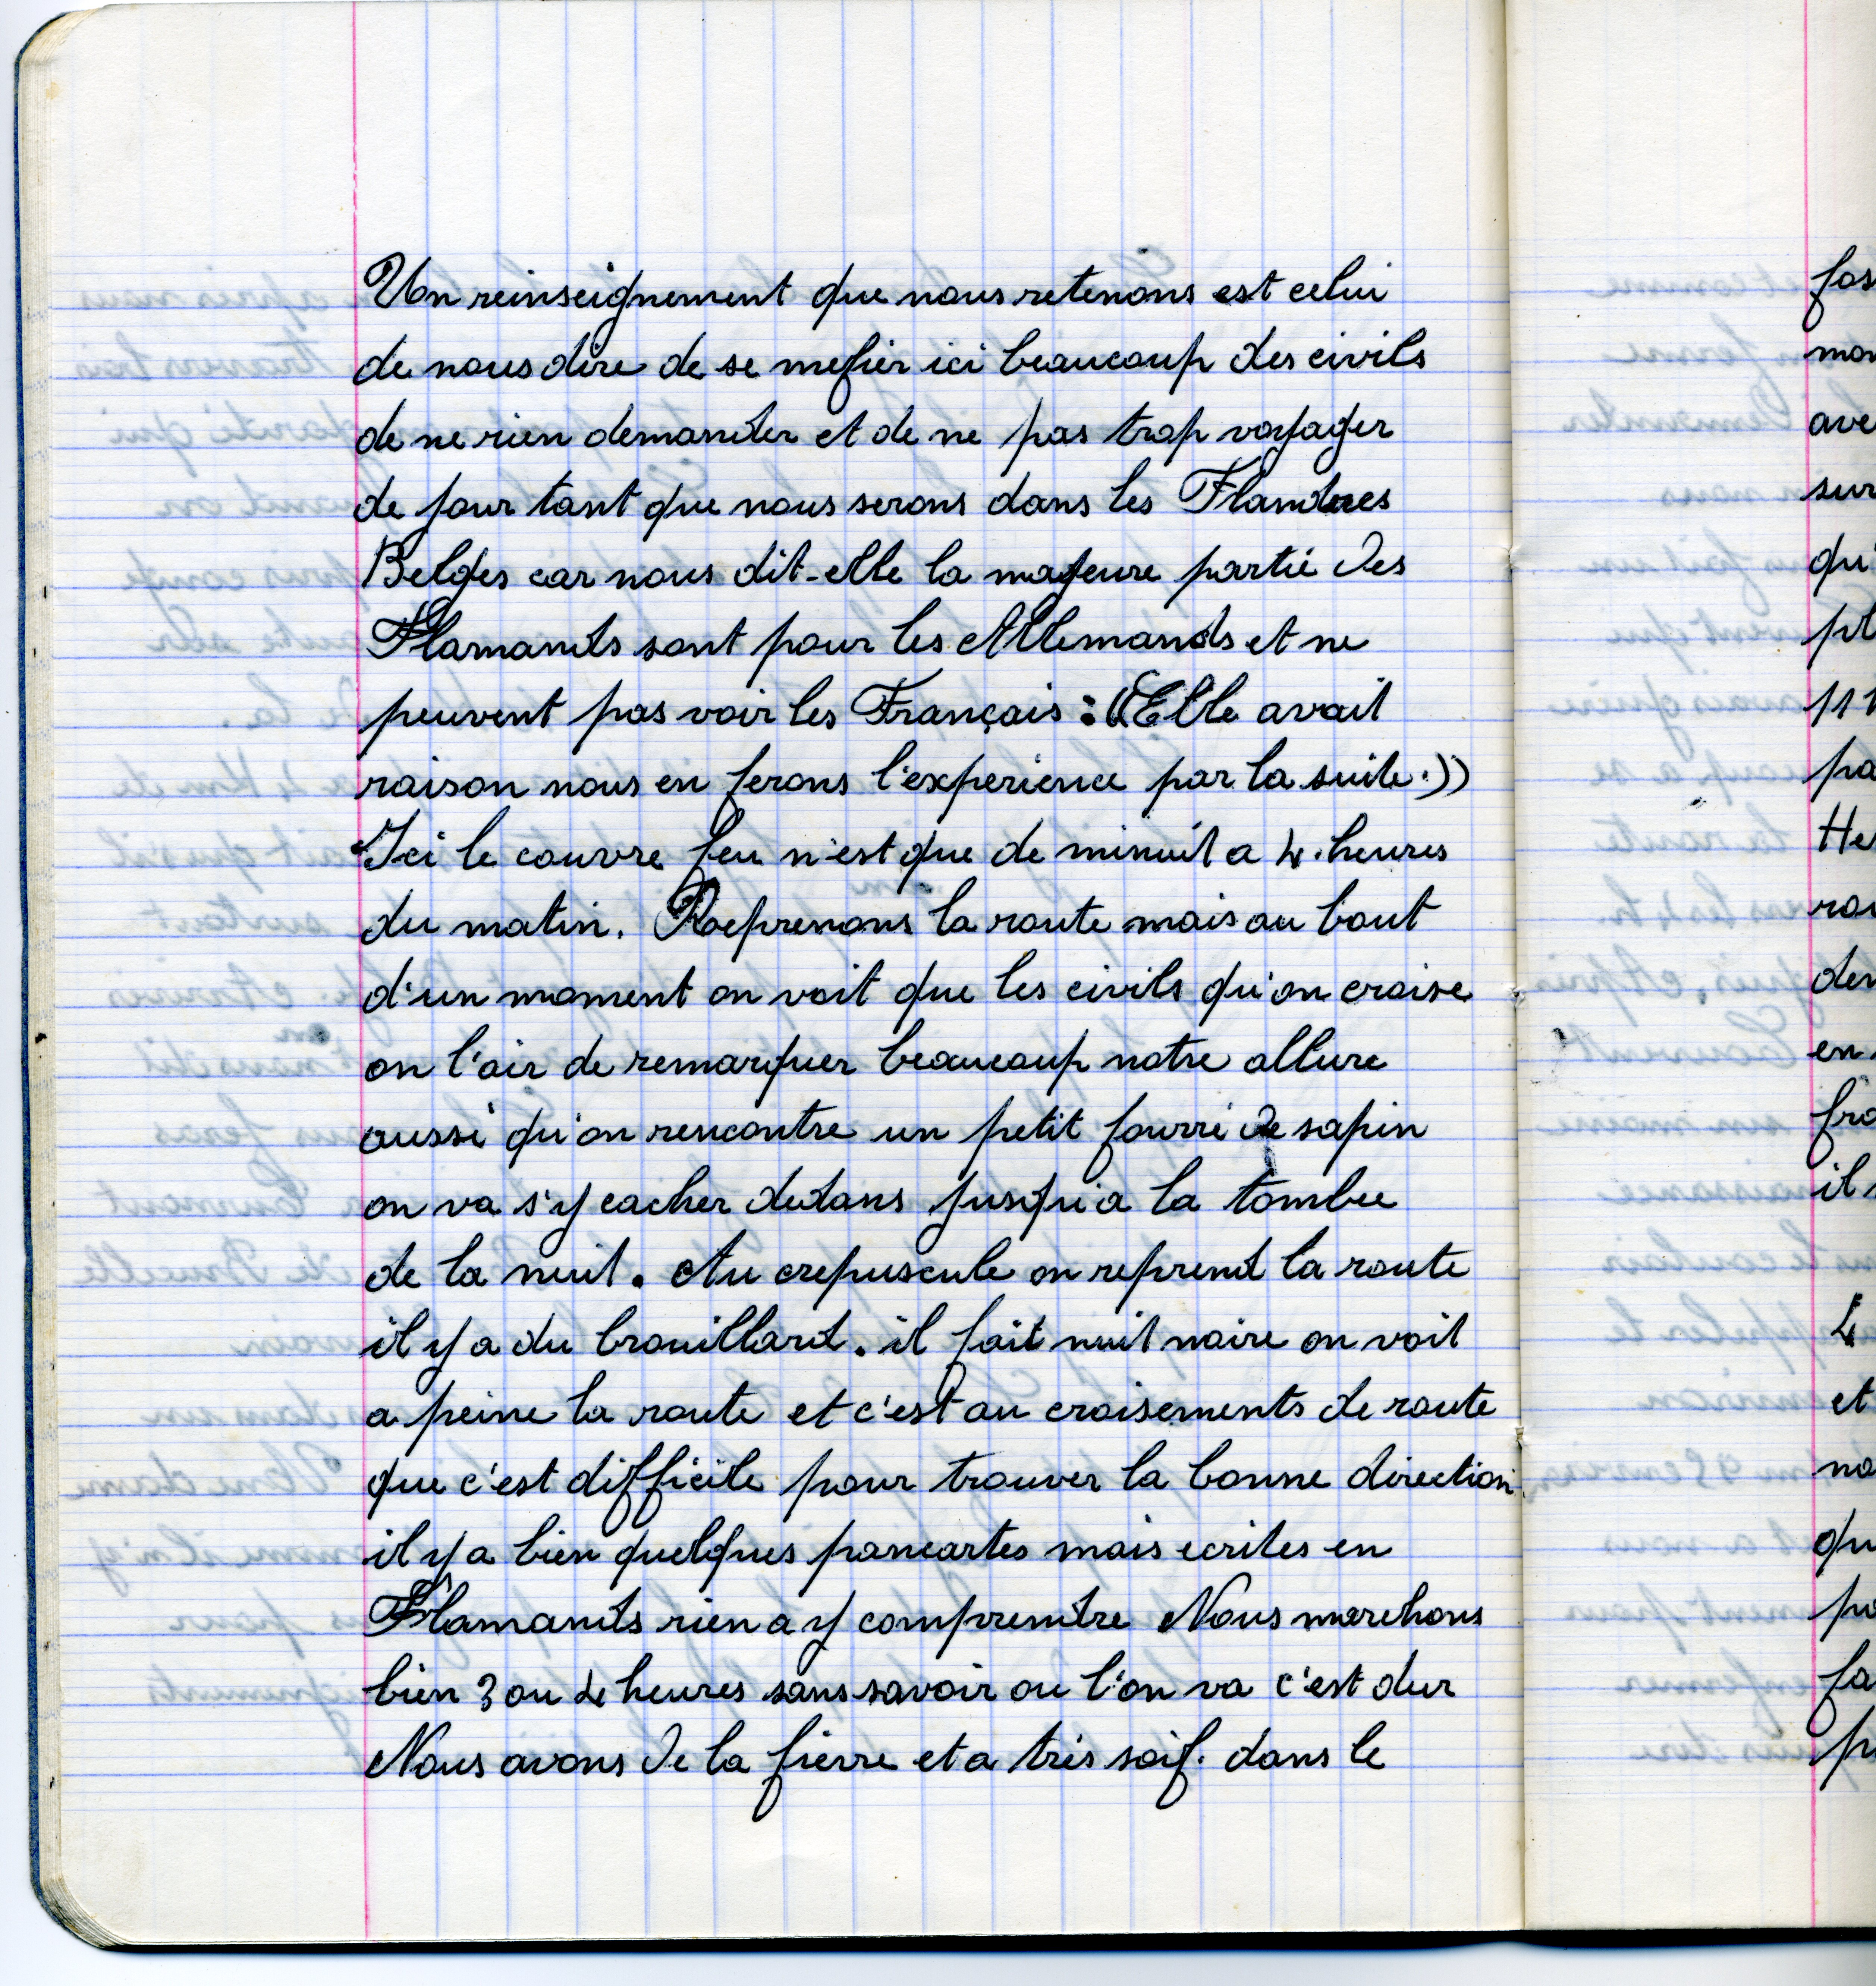 Un reinseignement que nous retenons est celui
de nous dire de se mefier ici beaucoup des civils
de ne rien demander et de ne pas trop voyager
de jour tant que nous serons dans les Flandres
Belges car nous dit-elle la majeure partie des
Flamands sont pour les Allemands et ne
peuvent pas voir les Français : ((Elle avait
raison nous en ferons l'experience par la suite.))
Ici le couvre feu n'est que de minuit a 4 heures
du matin. Reprenons la route mais au bout
d'un moment on voit que les civils qu'on croise
on l'air de remarquer beaucoup notre allure
aussi qu'on rencontre un petit fourré de sapin
on va s'y cacher dedans jusqu'a la tombee
de la nuit. Au crepuscule on reprend la route
il y a du brouillard. il fait nuit noire on voit
a peine la route et c'est au croisements de route
que c'est difficile pour trouver la bonne direction
il y a bien quelques pancartes mais ecrites en
Flamands rien a y comprendre Nous marchons
bien 3 ou 4 heures sans savoir ou l'on va c'est dur
Nous avons de la fièvre et a très soif. dans le